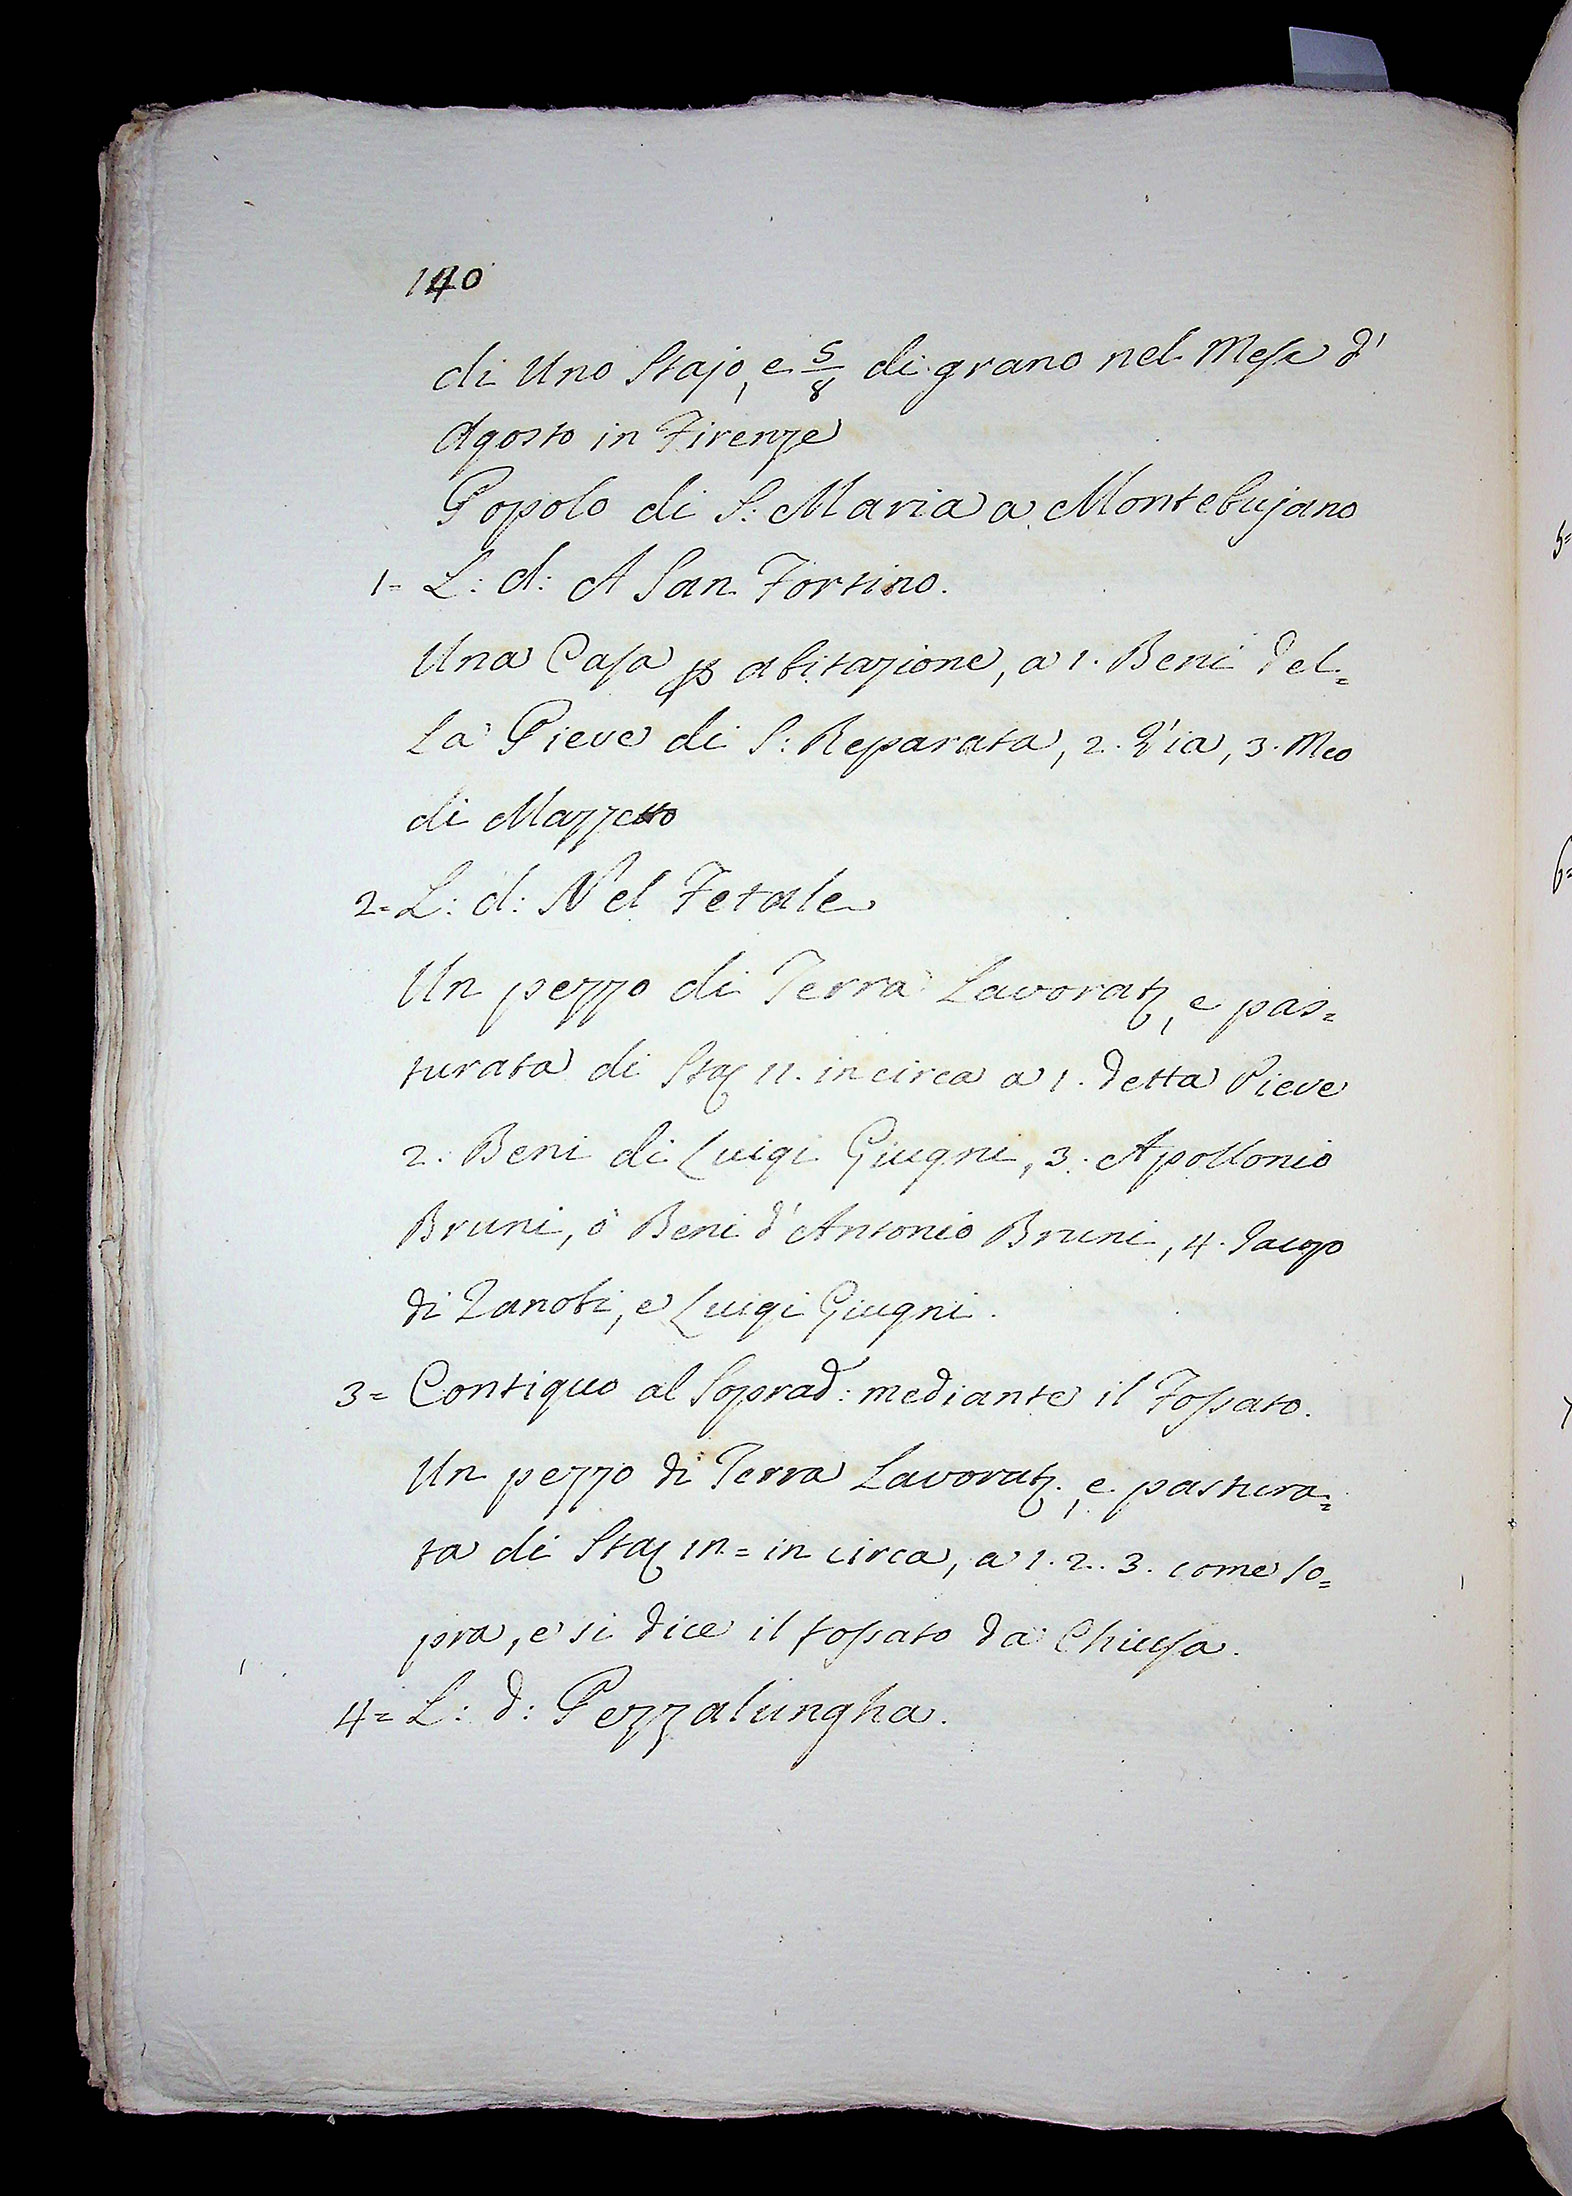 140
di Uno Stajo, e 5/8 di grano nel Mese d'
Agosto in Firenze
Popolo di S: Maria a Montebujano
1= L: d: A San Fortino.
Una Casa p abitazione, a 1. Beni del=
la Pieve di S: Reparata, 2. Via, 3. Meo
di Mazzetto
2= L: d: Nel Fetale
Un pezzo di Terra Lavorat, e pas=
turata di Sta 11. in circa a 1. detta Pieve
2. Beni di Luigi Giugni, 3. Apollonio
Bruni, ò Beni d'Antonio Bruni, 4. Jacopo
di Zanobi, e Luigi Giugni.
3= Contiguo al Soprad: mediante il Fossato.
Un pezzo di Terra Lavorat., e pastura=
ta di Sta = in circa, a 1. 2. 3. come so=
pra, e si dice il fossato da Chiusa.
4= L: d: Pezzalungha.
5=
6=